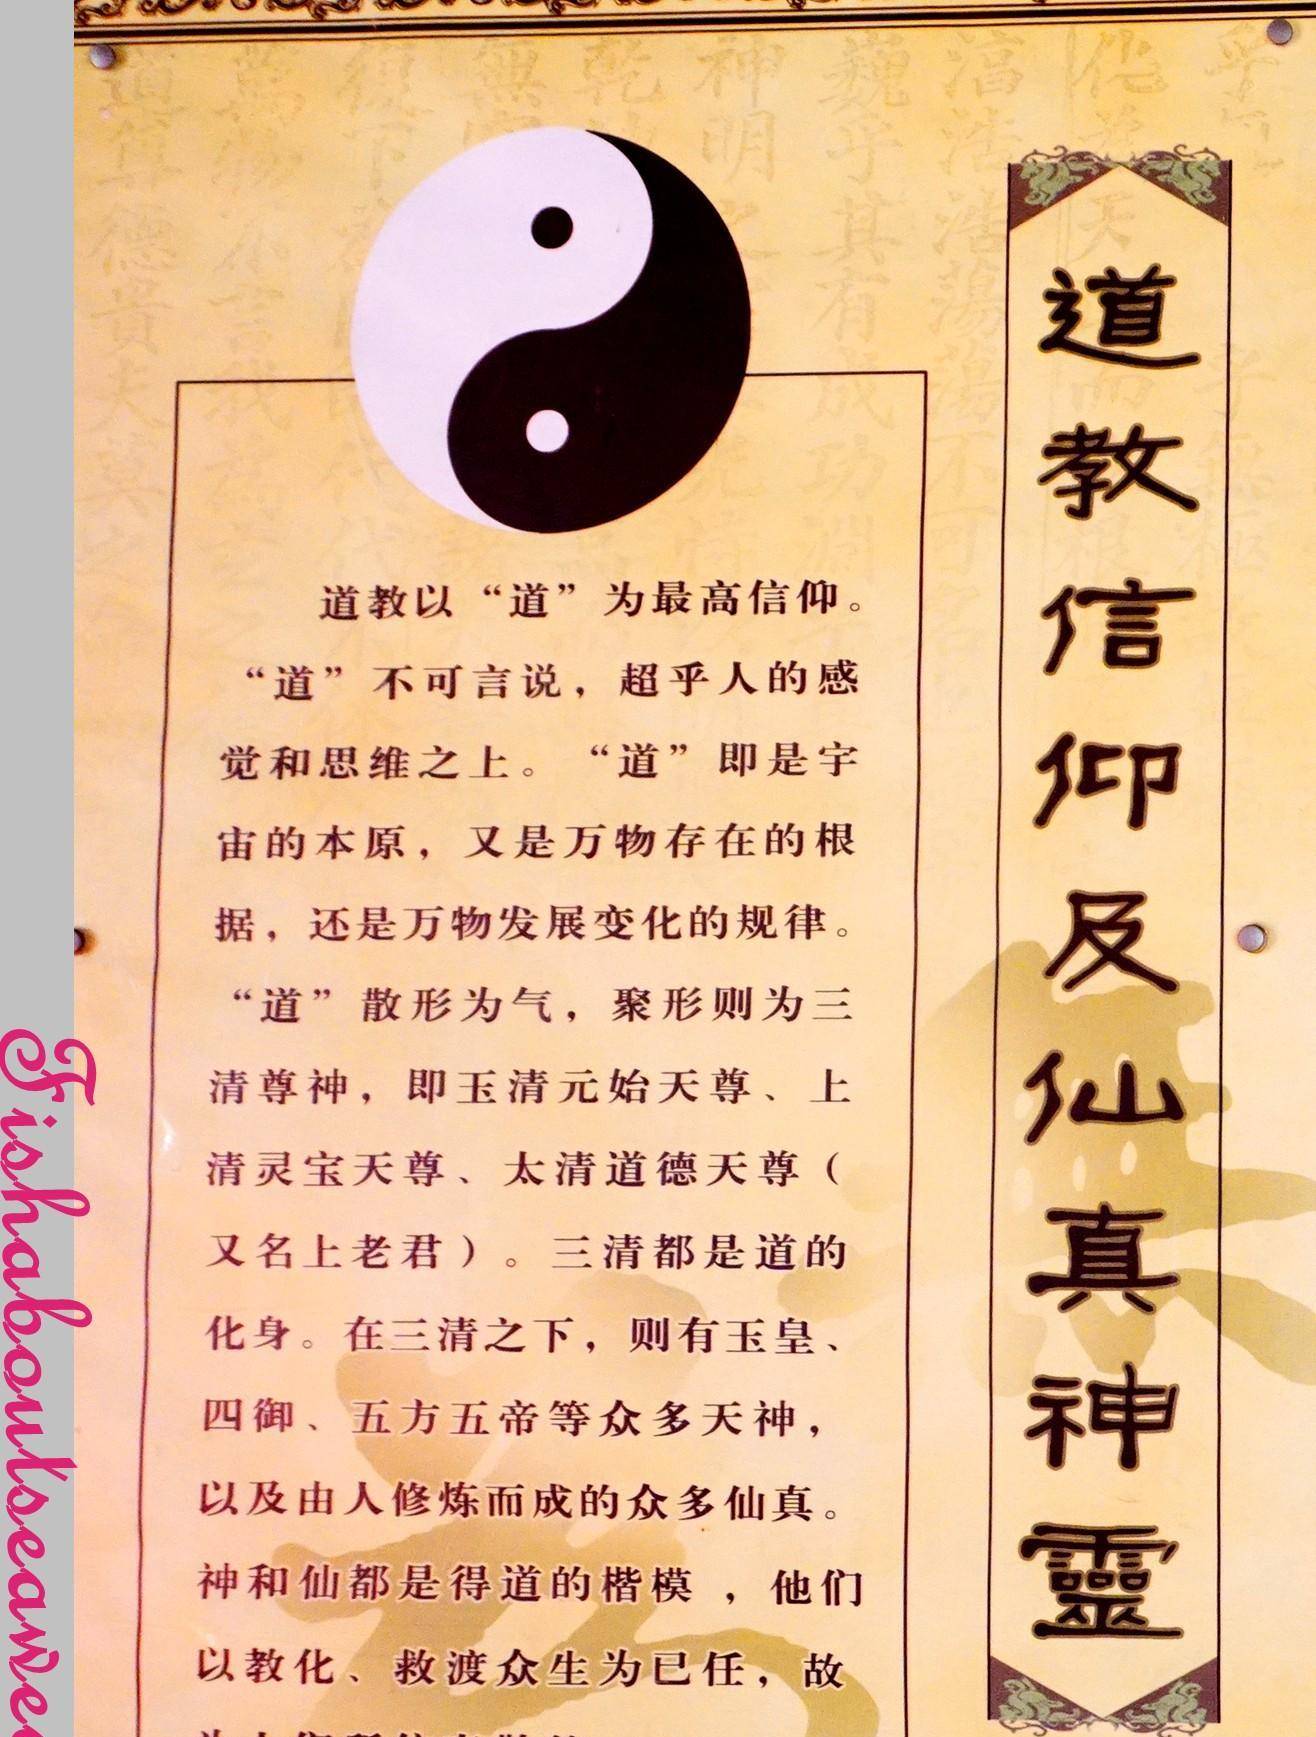 道教信仰及仙真神靈
道教以“道”为最高信仰。
“道”不可言说，超乎人的感
觉和思维之上。“道”即是宇
宙的本原，又是万物存在的根
据，还是万物发展变化的规律。
“道”散形为气，聚形则为三
清尊神，即玉清元始天尊、上
清灵宝天尊、太清道德天尊（
又名上老君）。三清都是道的
化身。在三清之下，则有玉皇、
四御、五方五帝等众多天神，
以及由人修炼而成的众多仙真。
神和仙都是得道的楷模，他们
以教化、救渡众生为己任，故
Fishaboutseawe